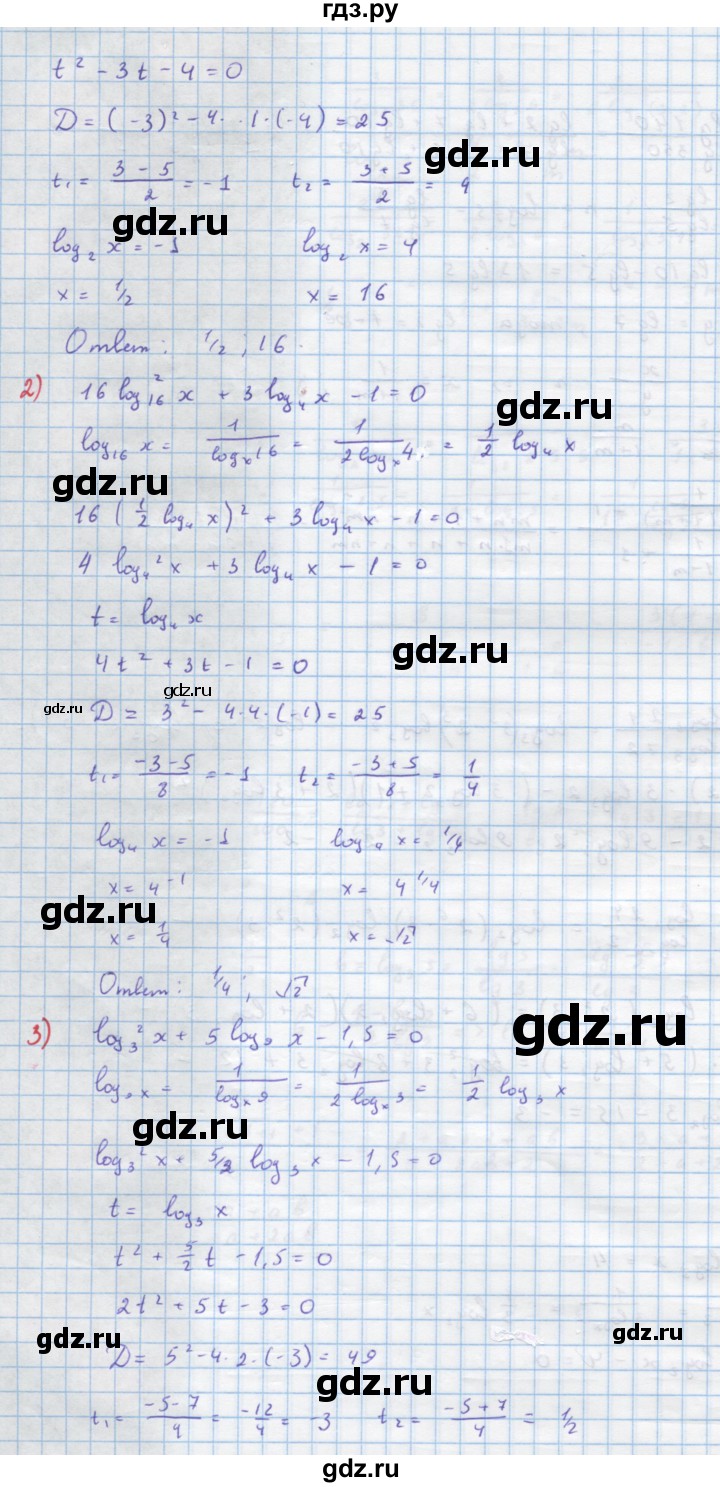 гдз.ру
t² - 3t - 4 = 0
D = (-3)² - 4 · 1 · (-4) = 25
gdz.ru
t₁ = (3 - 5)/2 = -1    t₂ = (3 + 5)/2 = 4
gdz.ru
log₂ x = -1    log₂ x = 4
x = 1/2    x = 16
Ответ: 1/2 ; 16.
2) 16 log²₁₆ x + 3 log₄ x - 1 = 0
gdz.ru
log₁₆ x = 1/(logₓ 16) = 1/(2 logₓ 4) = 1/2 log₄ x
gdz.ru
16 (1/2 log₄ x)² + 3 log₄ x - 1 = 0
4 log₄² x + 3 log₄ x - 1 = 0
t = log₄ x
gdz.ru
4t² + 3t - 1 = 0
gdz.ru
gdz.ru
D = 3² - 4·4·(-1) = 25
t₁ = (-3-5)/8 = -1    t₂ = (-3+5)/8 = 1/4
log₄ x = -1    log₄ x = 1/4
x = 4⁻¹    x = 4^1/4
gdz.ru
x = 1/4    x = √2
Ответ: 1/4 ; √2
gdz.ru
3) log₃² x + 5 log₉ x - 1,5 = 0
log₉ x = 1/(logₓ 9) = 1/(2 logₓ 3) = 1/2 log₃ x
gdz.ru
log₃² x + 5/2 log₃ x - 1,5 = 0
t = log₃ x
t² + 5/2 t - 1,5 = 0
2t² + 5t - 3 = 0
gdz.ru
gdz.ru
D = 5² - 4·2·(-3) = 49
gdz.ru
t₁ = (-5-7)/4 = -12/4 = -3    t₂ = (-5+7)/4 = 1/2
gdz.ru